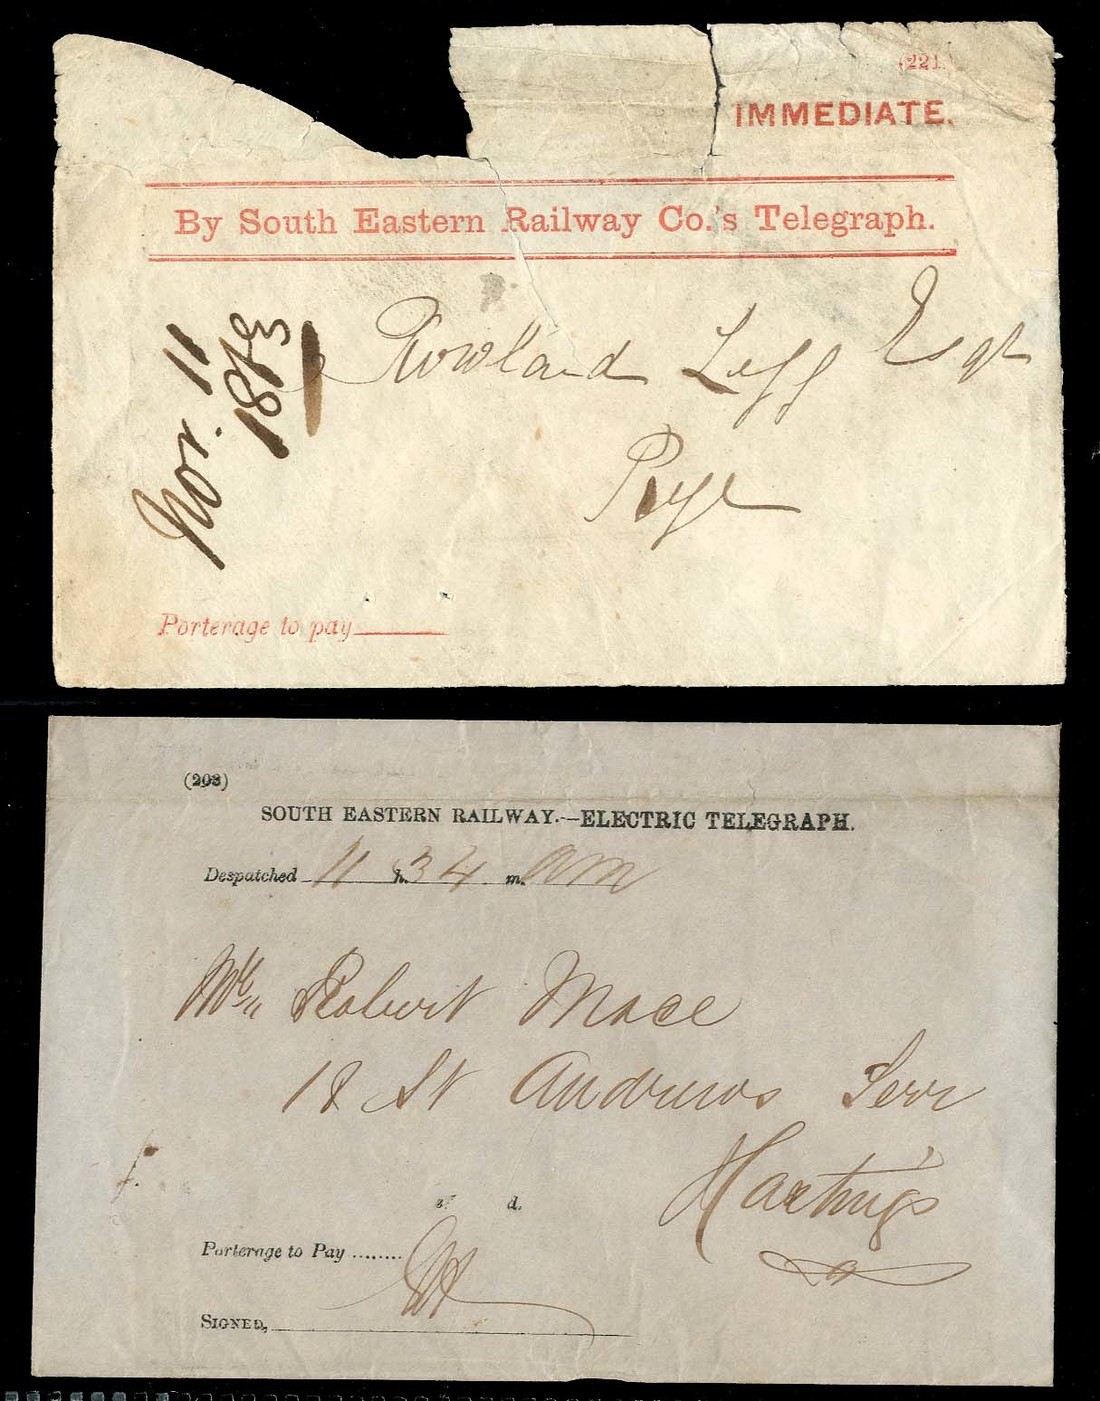 (221.)
IMMEDIATE.
By South Eastern Railway Co.'s Telegraph.
Nov. 11
1873
Rowland Legg Esqr
Rye
Porterage to pay
(203)
SOUTH EASTERN RAILWAY.—ELECTRIC TELEGRAPH.
Despatched 11 h. 34 m. am
Robert Mace
18 St Andrews Terr
Hastings
s. d.
Porterage to Pay ........
SIGNED,